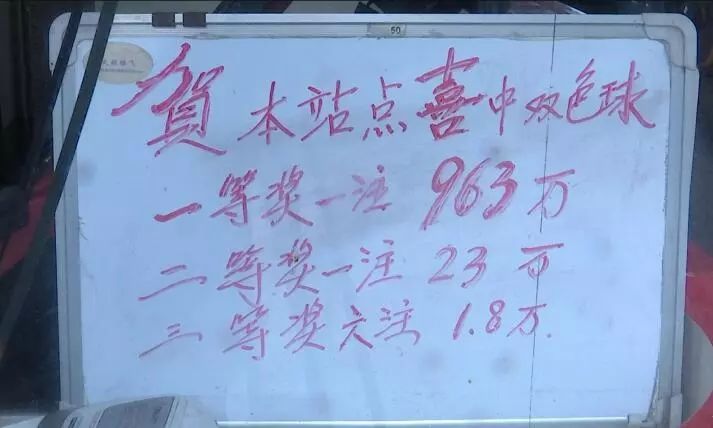 50
賀本站点喜中双色球
一等奖一注 963万
二等奖一注 23万
三等奖六注 1.8万